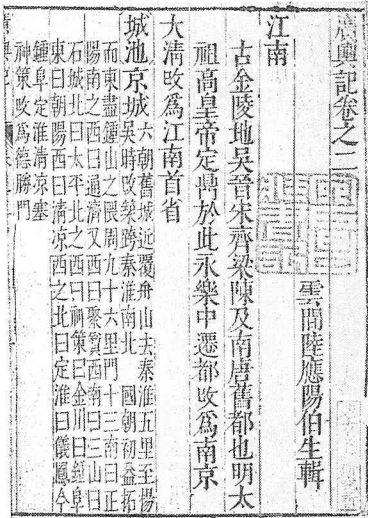 廣輿記卷之二
雲間陸應陽伯生輯
江南
古金陵地吳晉宋齊梁陳及南唐舊都也明太
祖高皇帝定鼎於此永樂中遷都攺爲南京
大清攺爲江南首省
城池 京城 六朝舊城近覆舟山去秦淮五里至楊
吳時攺築跨秦淮南北 國朝初益拓
而東盡鍾山之隈周九十六里門十三南曰正
陽南之西曰通濟又西曰聚寶西南曰三山曰
石城北曰太平北之西曰神策曰金川曰鍾阜
東曰朝陽西曰清凉西之北曰定淮曰儀鳳今
鍾阜定淮清凉塞
神策攺爲德勝門